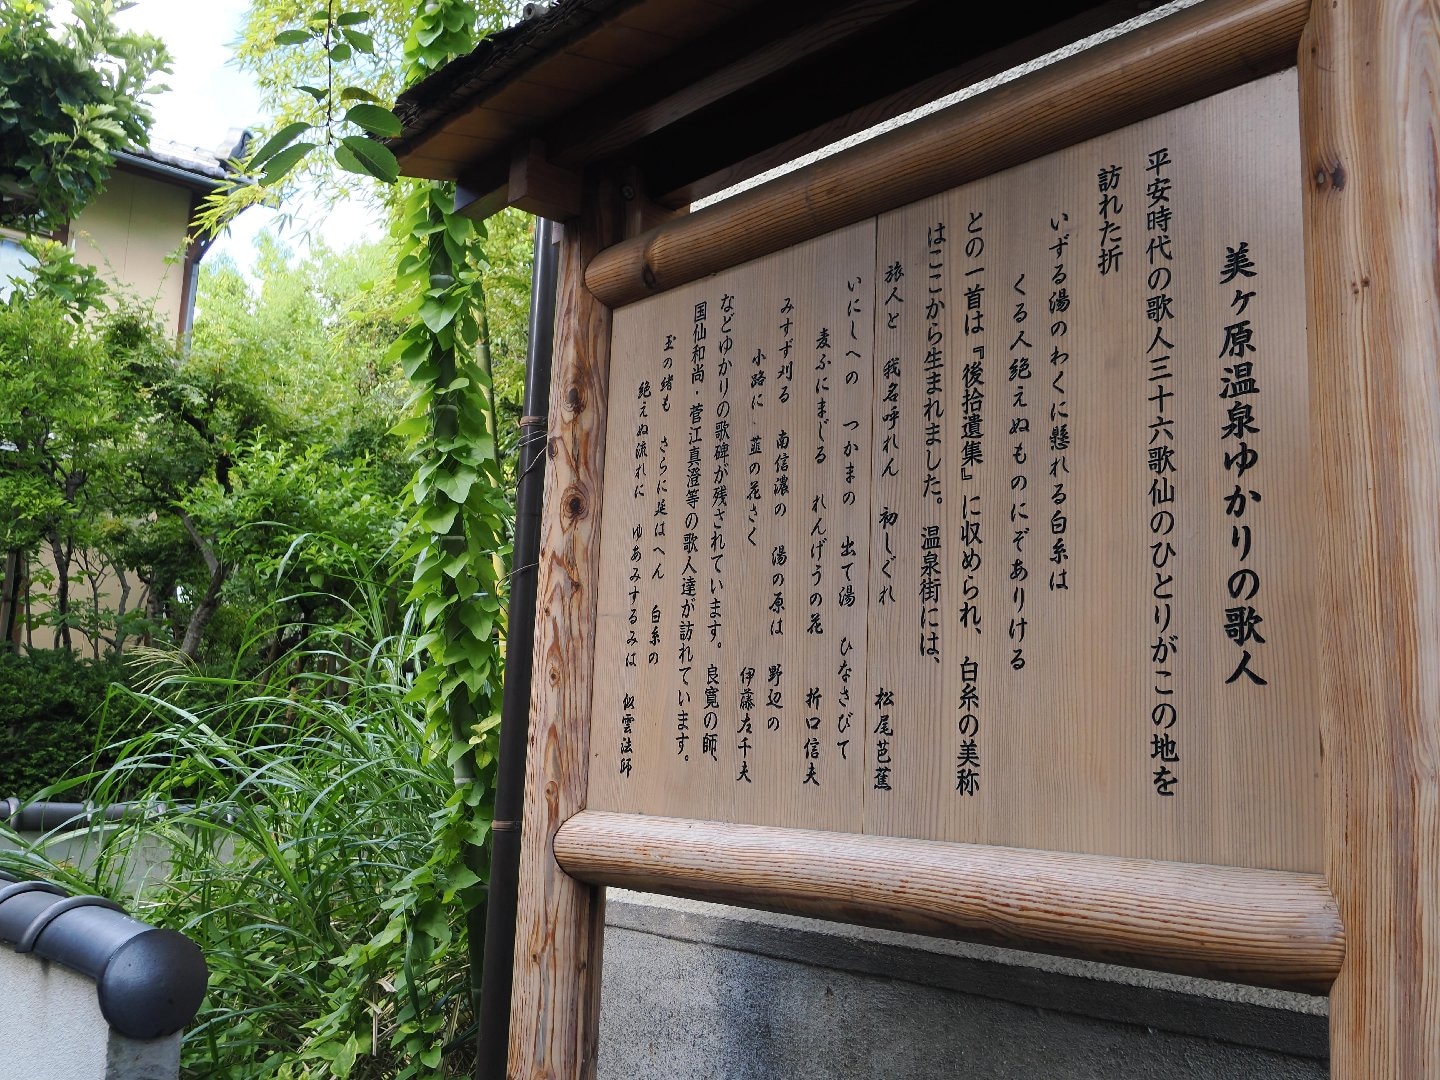 美ヶ原温泉ゆかりの歌人
平安時代の歌人三十六歌仙のひとりがこの地を
訪れた折
いずる湯のわくに懸れる白糸は
くる人絶えぬものにぞありける
との一首は『後拾遺集』に収められ、白糸の美称
はここから生まれました。温泉街には、
旅人と 我名呼れん 初しぐれ 松尾芭蕉
いにしへの つかまの 出て湯 ひなさびて
麦ふにまじる れんげうの花 折口信夫
みすず刈る 南信濃の 湯の原は 野辺の
小路に 菫の花さく 伊藤左千夫
などゆかりの歌碑が残されています。良寛の師、
国仙和尚・菅江真澄等の歌人達が訪れています。
玉の緒も さらに延はへん 白糸の
絶えぬ流れに ゆあみするみは 似雲法師